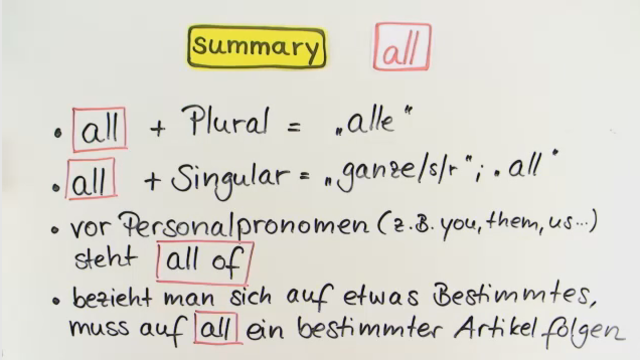 summary all
• all + Plural = „alle“
• all + Singular = „ganze/s/r“; „all“
• vor Personalpronomen (z.B. you, them, us...)
steht all of
• bezieht man sich auf etwas Bestimmtes,
muss auf all ein bestimmter Artikel folgen